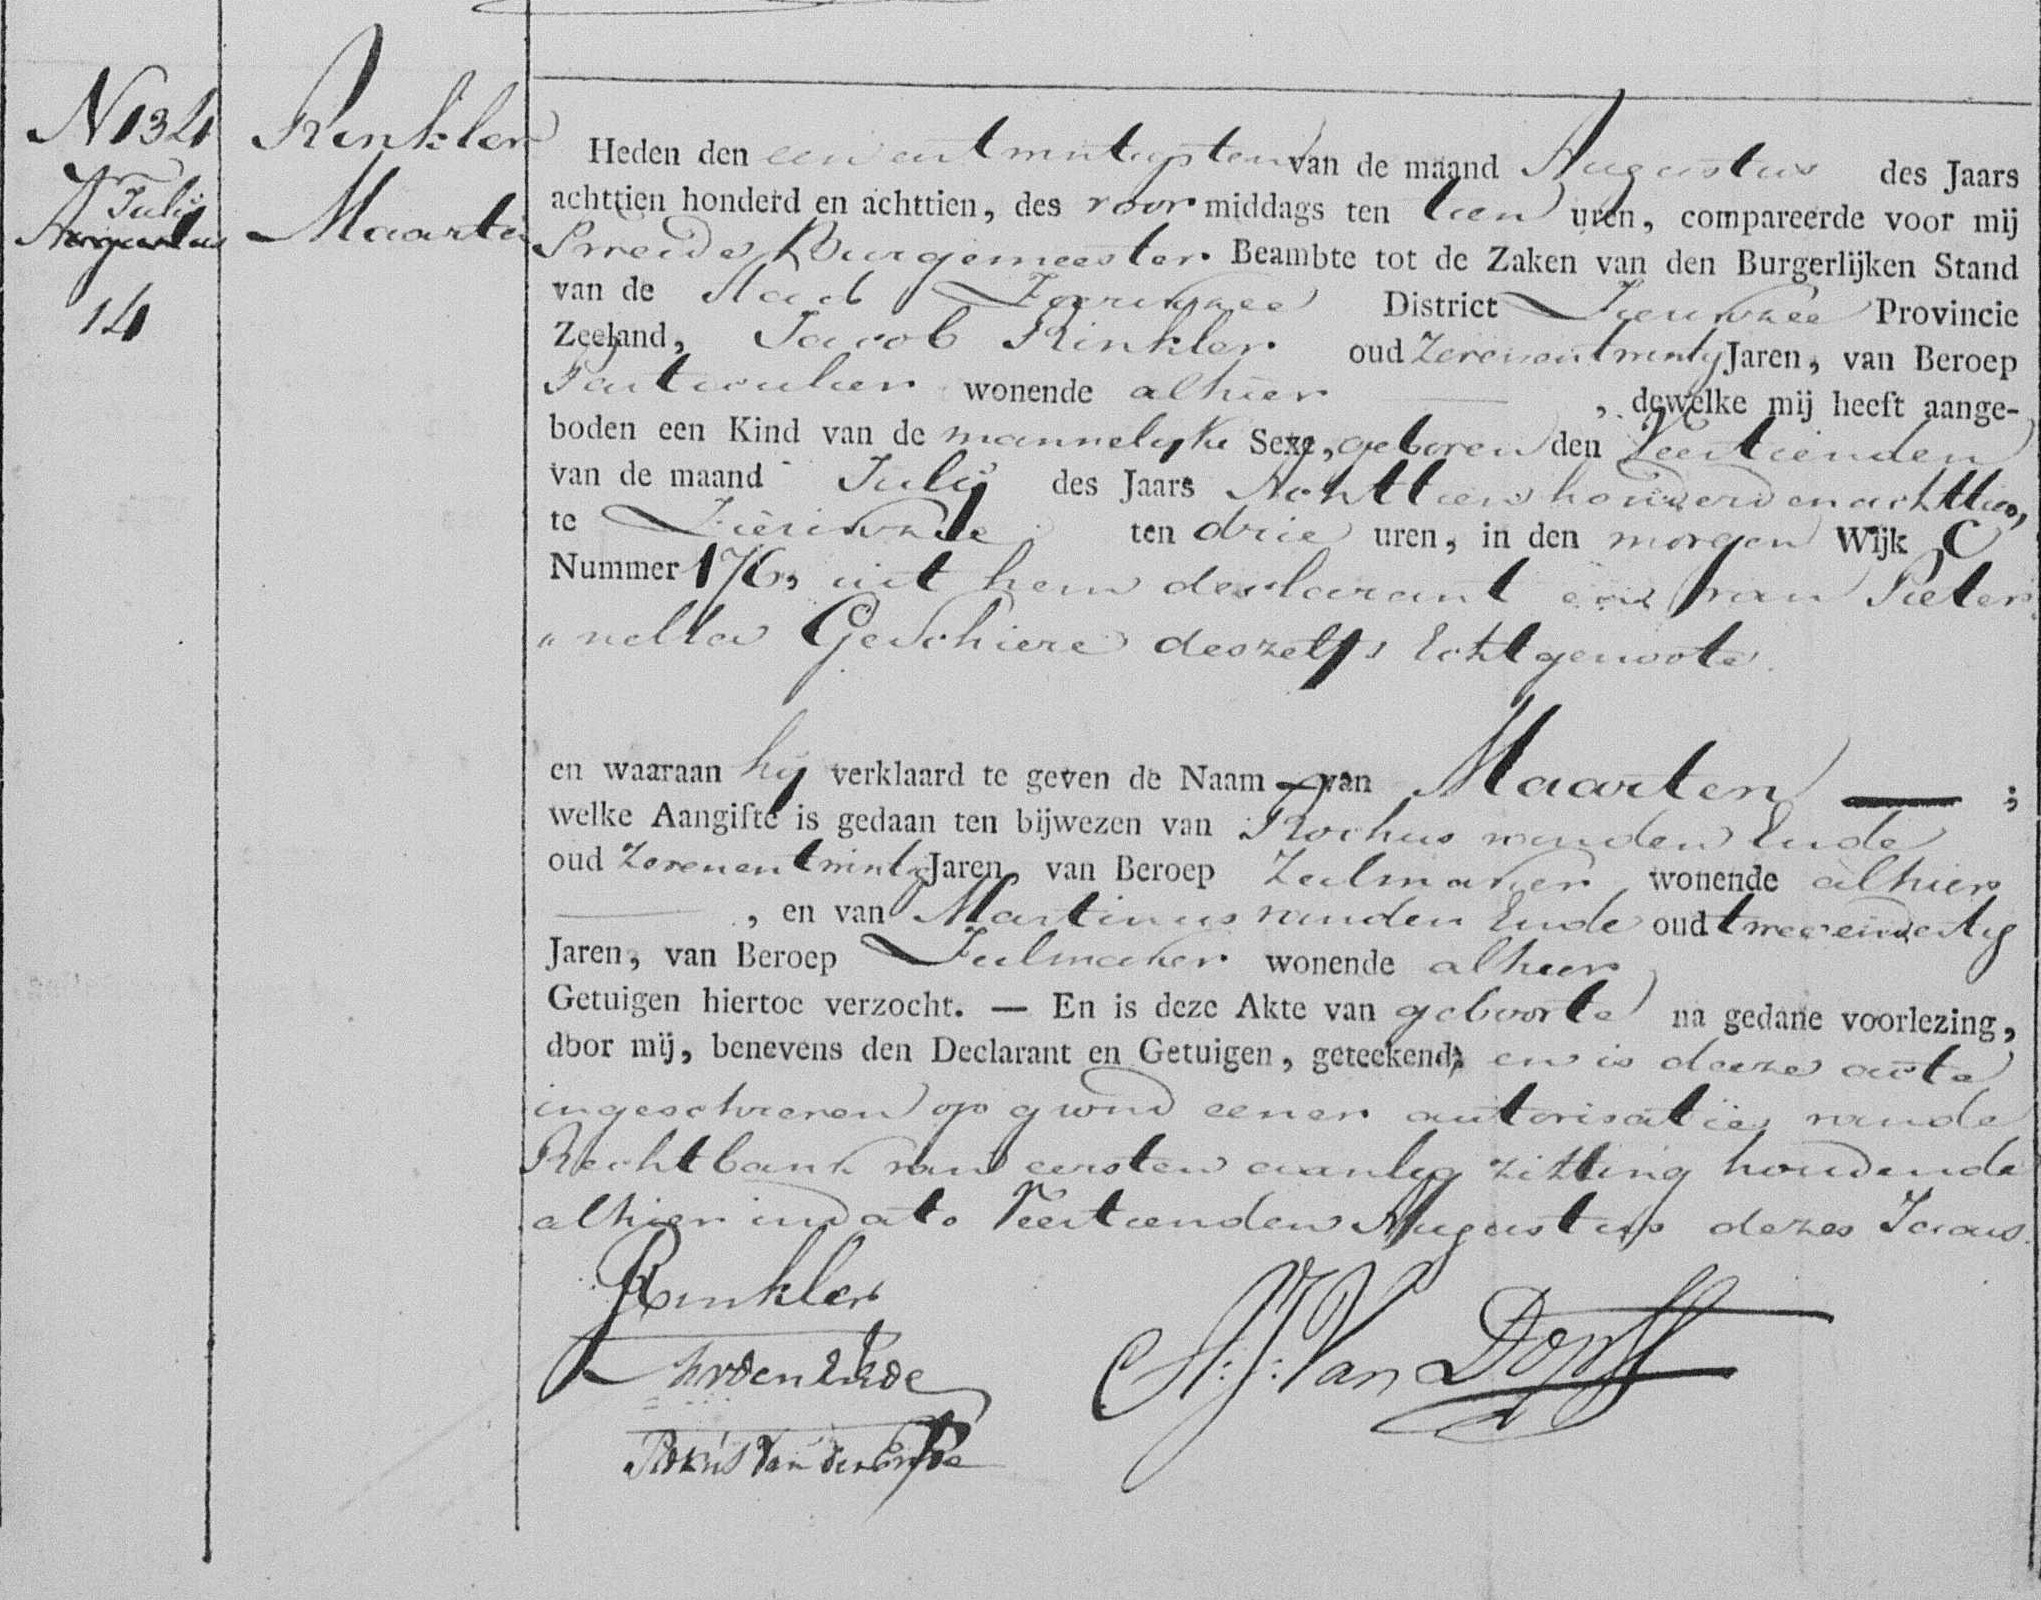 N 134
Julij
Augustus
14
Rinkler
Maarten
Heden den een en twintigsten van de maand Augustus des Jaars
achttien honderd en achttien, des voor middags ten tien uren, compareerde voor mij
Burgemeester. Beambte tot de Zaken van den Burgerlijken Stand
van de Stad Zierikzee District Zierikzee Provincie
Zeeland, Jacob Rinkler oud zevenentwintig Jaren, van Beroep
Particulier wonende alhier , dewelke mij heeft aange-
boden een Kind van de mannelyke Sexe, geboren den Veertienden
van de maand Julij des Jaars Achttien honderd en achttien,
te Zierikzee ten drie uren, in den morgen Wijk C
Nummer 176, uit hem declarant en van Pieter
„nella Geschiere deszelfs Echtgenoote.
en waaraan hij verklaard te geven de Naam van Maarten ;
welke Aangifte is gedaan ten bijwezen van Rochus vanden Ende
oud zevenentwintig Jaren, van Beroep Zeilmaker wonende alhier
, en van Martinus vanden Ende oud tweeendertig
Jaren, van Beroep Zeilmaker wonende alhier
Getuigen hiertoe verzocht. — En is deze Akte van geboorte na gedane voorlezing,
door mij, benevens den Declarant en Getuigen, geteekend, en is deeze acte
ingeschreven op grond eener autorisatie vande
Rechtbank van eersten aanleg zitting houdende
alhier in dato Veertienden Augustus dezes Jaars.
J Rinkler
A. J. Van Dopff
vrden Ende
Rokus Van den Ende